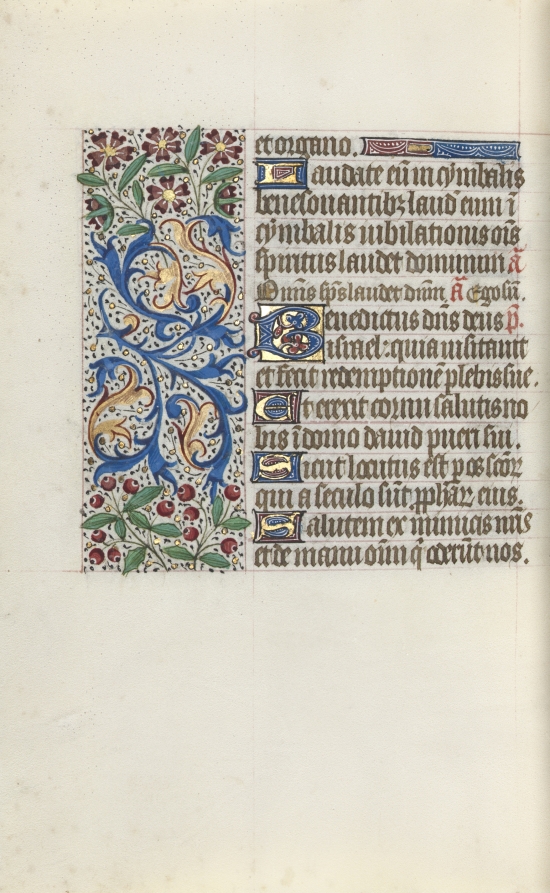 et organo.
Laudate eū in cymbalis
benesonantibꝫ laud eum ī
cymbalis iubilationis oīs
spiritus laudet dominum ā
Omīs sp̄s laudet dn̄m ā Ego sū.
Benedictus dn̄s deus p̄.
israel: quia uisitauit
et fecit redemptionē plebis sue.
Et erexit cornu salutis no
bis ī domo dauid pueri sui.
Sicut locutus est per os scōꝝ
qui a seculo sūt ꝓphāꝝ eius.
Salutem ex inimicis nr̄is
et de manu oīm q̄ oderūt nos.